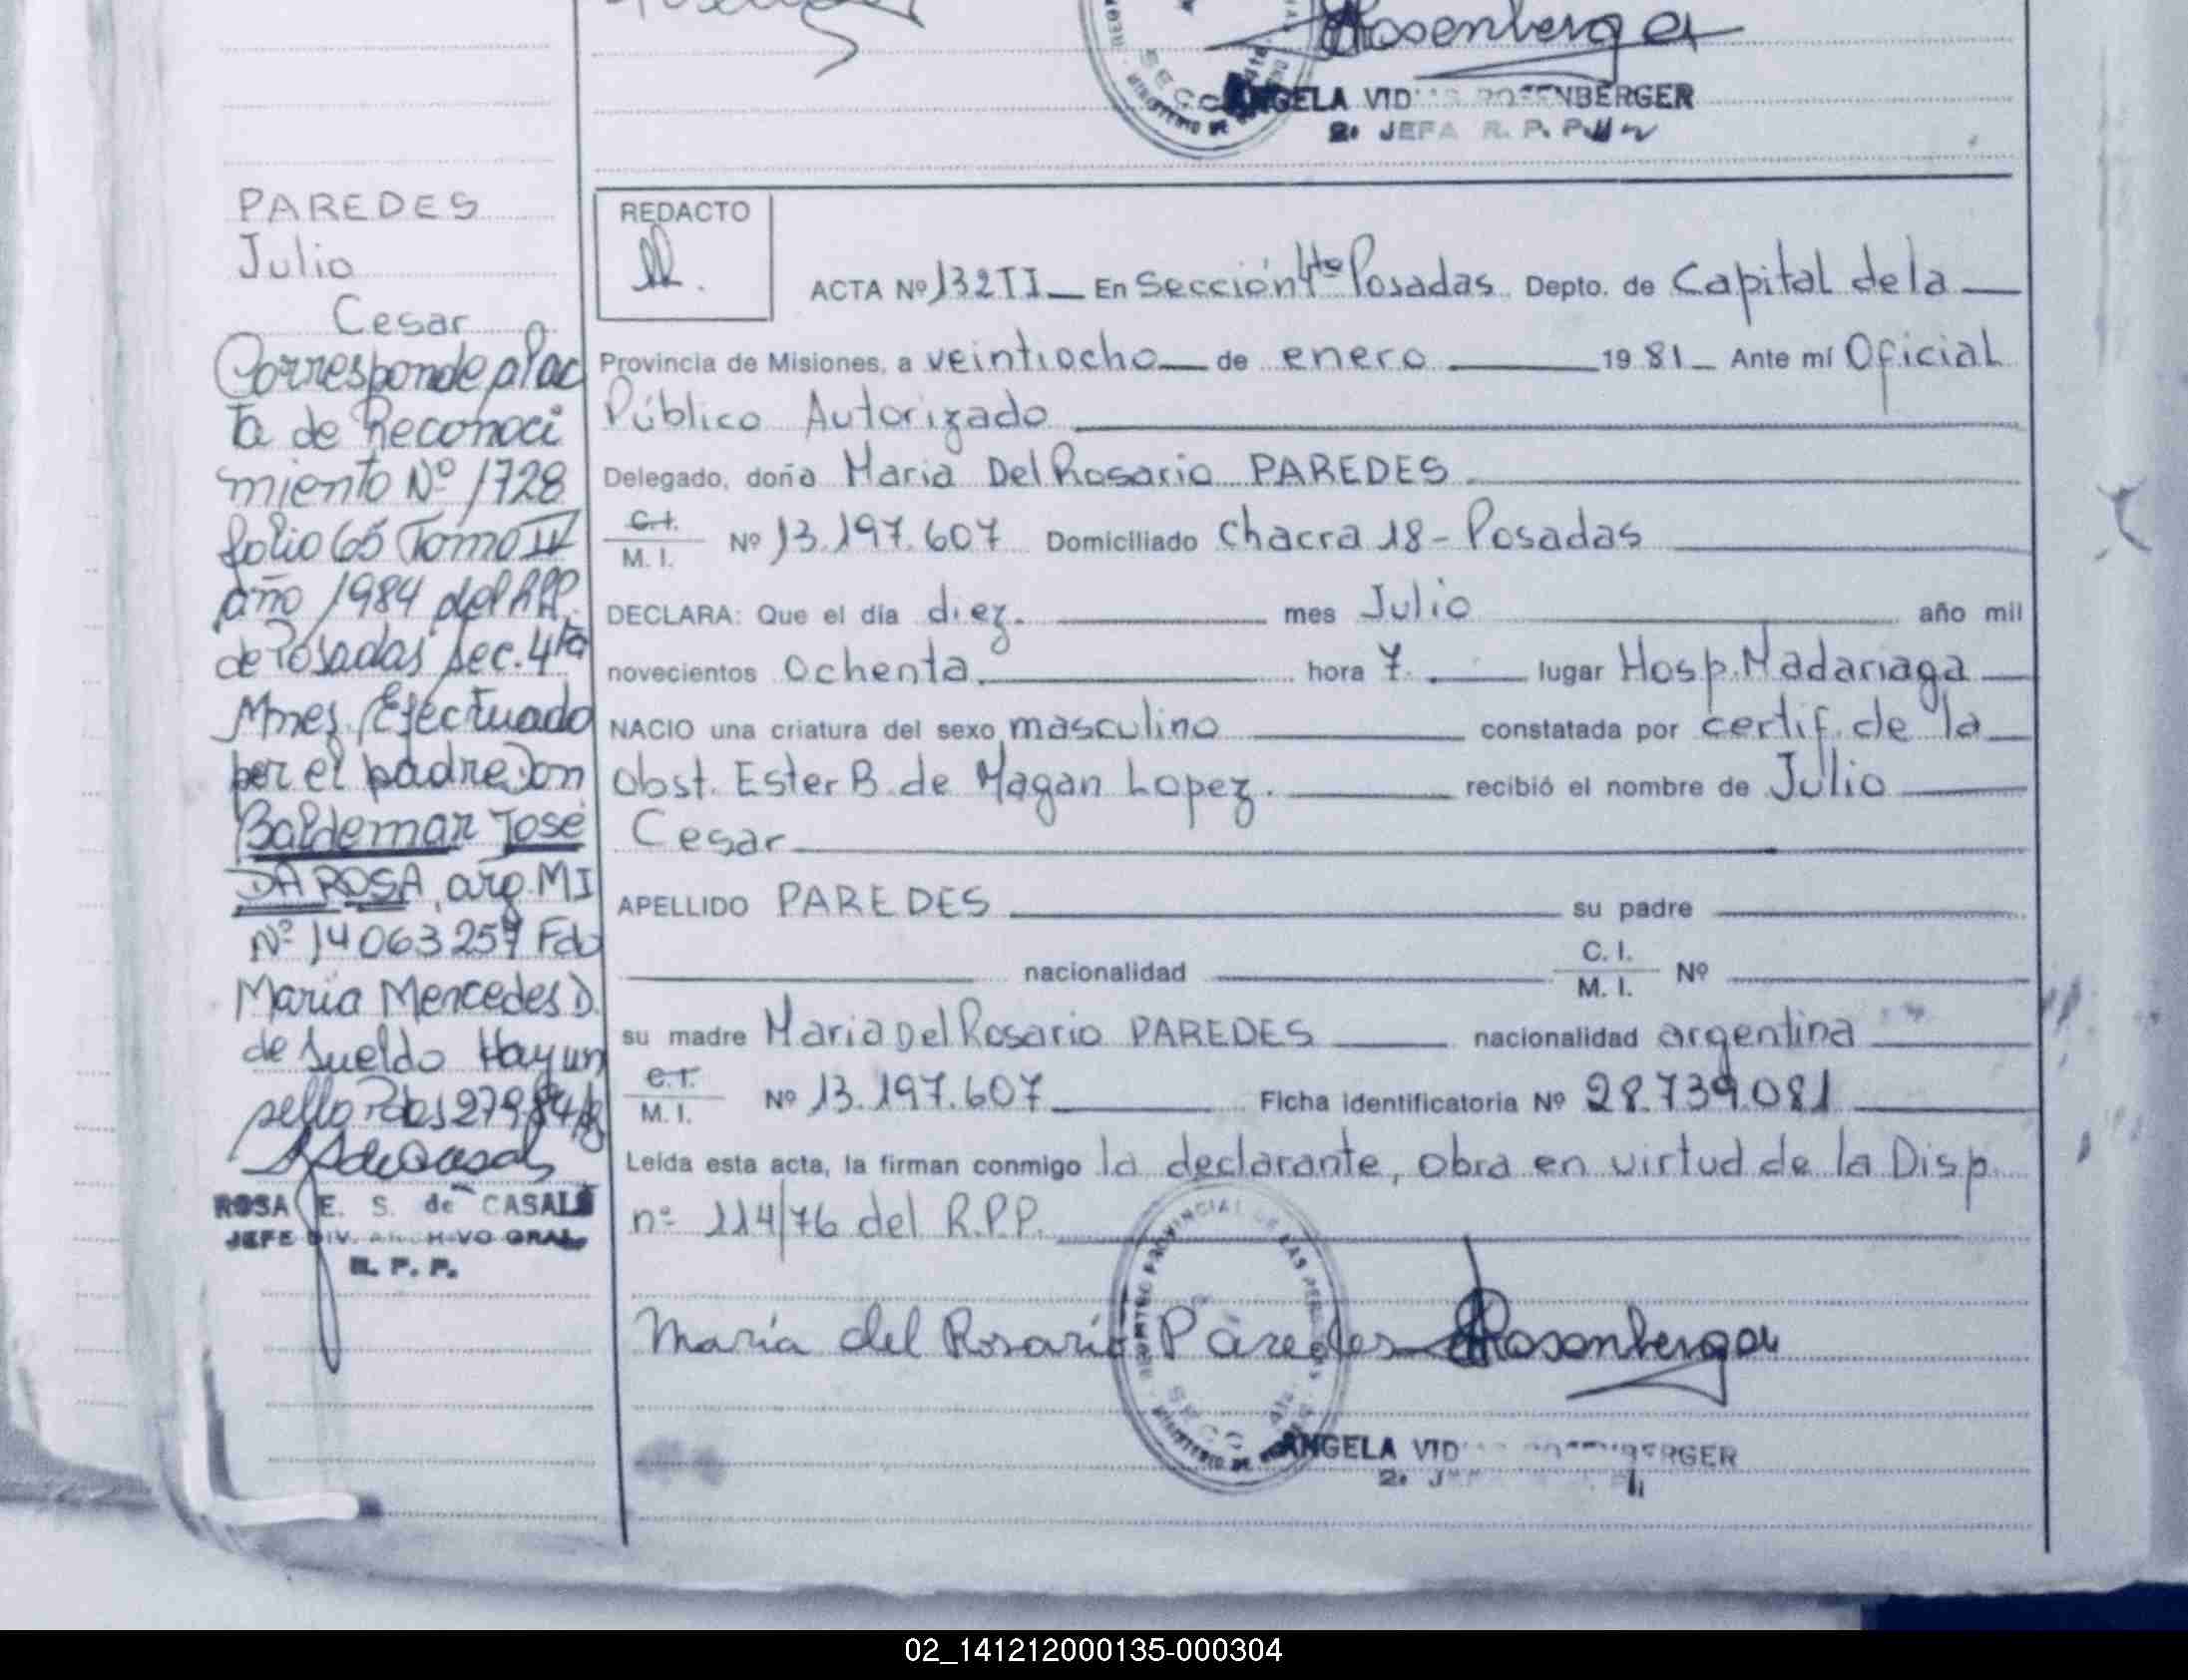 Rosenberger
ANGELA VID ROSENBERGER
2. JEFA R. P. P.
PAREDES
Julio
Cesar
Corresponde al ac
ta de Reconoci
miento Nº 1728
folio 65 Tomo IV
año 1984 del RPP.
de Posadas Sec. 4ta
Mnes. Efectuado
por el padre Don
Baldemar José
DA ROSA, arg. MI
Nº 14063257 Fdo
María Mercedes D.
de Sueldo Hay un
sello Pdas 27984
ROSA E. S. de CASALS
JEFE DIV. ARCHIVO GRAL.
R. P. P.
REDACTO
ACTA Nº 132 TI En Sección 4ta Posadas Depto. de Capital de la
Provincia de Misiones, a veintiocho de enero 1981 Ante mí Oficial
Público Autorizado
Delegado, doña Maria Del Rosario PAREDES
C.I.
M. I. Nº 13.197.607 Domiciliado Chacra 18 - Posadas
DECLARA: Que el día diez. mes Julio año mil
novecientos Ochenta. hora 7. lugar Hosp. Madariaga
NACIO una criatura del sexo masculino constatada por certif. de la
Obst. Ester B. de Magan Lopez. recibió el nombre de Julio
Cesar
APELLIDO PAREDES su padre
nacionalidad C. I.
M. I. Nº
su madre Maria Del Rosario PAREDES nacionalidad argentina
C.I.
M. I. Nº 13.197.607 Ficha identificatoria Nº 28.739.081
Leída esta acta, la firman conmigo la declarante, obra en virtud de la Disp.
nº 114/76 del R.P.P.
María del Rosario Paredes Rosenberger
REGISTRO PROVINCIAL DE LAS PERSONAS
SECC 4ta
MINISTERIO DE
ANGELA VID ROSENBERGER
2.
02_141212000135-000304